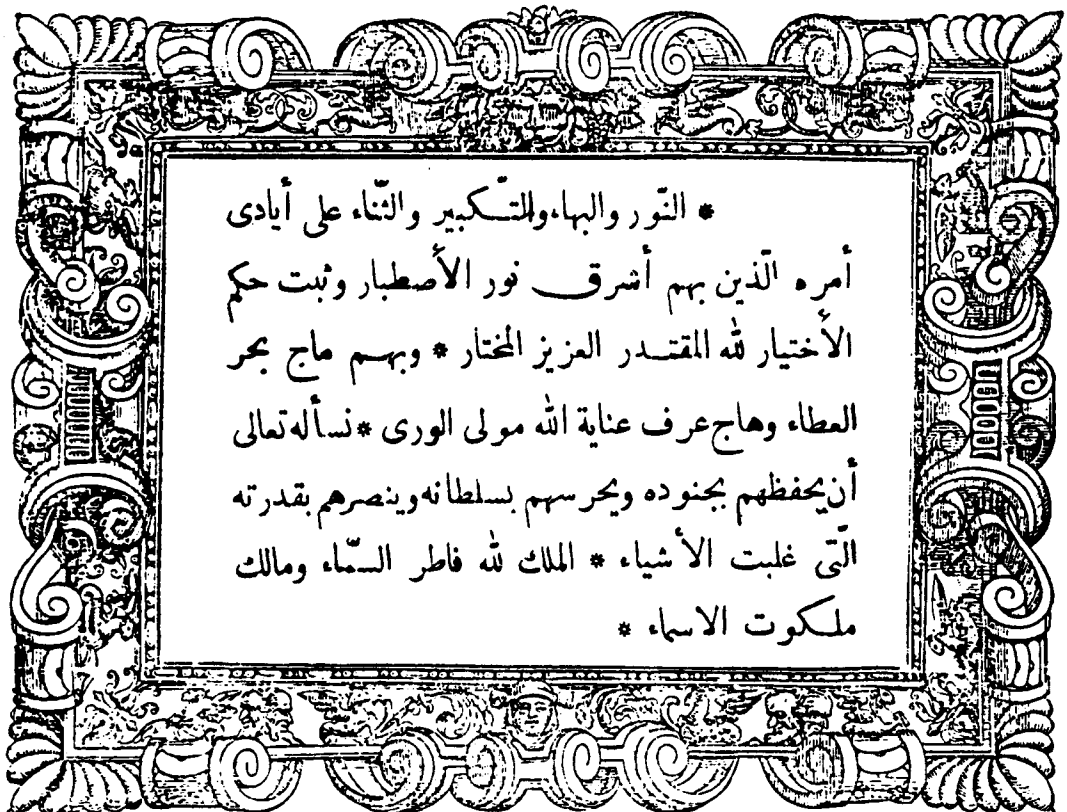 * النّور والبهاء والتّكبير والثّناء على أيادى
أمره الّذين بهم أشرق نور الأصطبار وثبت حكم
الأختيار لله المقتدر العزيز المختار * وبهم ماج بحر
العطاء وهاج عرف عناية الله مولى الورى * نسأله تعالى
أن يحفظهم بجنوده ويحرسهم بسلطانه وينصرهم بقدرته
الّتى غلبت الأشياء * الملك لله فاطر السمّاء ومالك
ملكوت الاسماء *